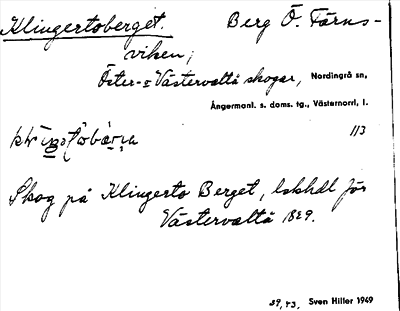 Klingertoberget. Berg Ö. Färns-
viken;
Öster- o Västervalta skogar, Nordingrå sn,
Ångermanl. s. doms. tg., Västernorrl. l.
113
Skog på Klingerto Berget, lskhdl för
Västervalta 1829.
39, 43. Sven Hiller 1949